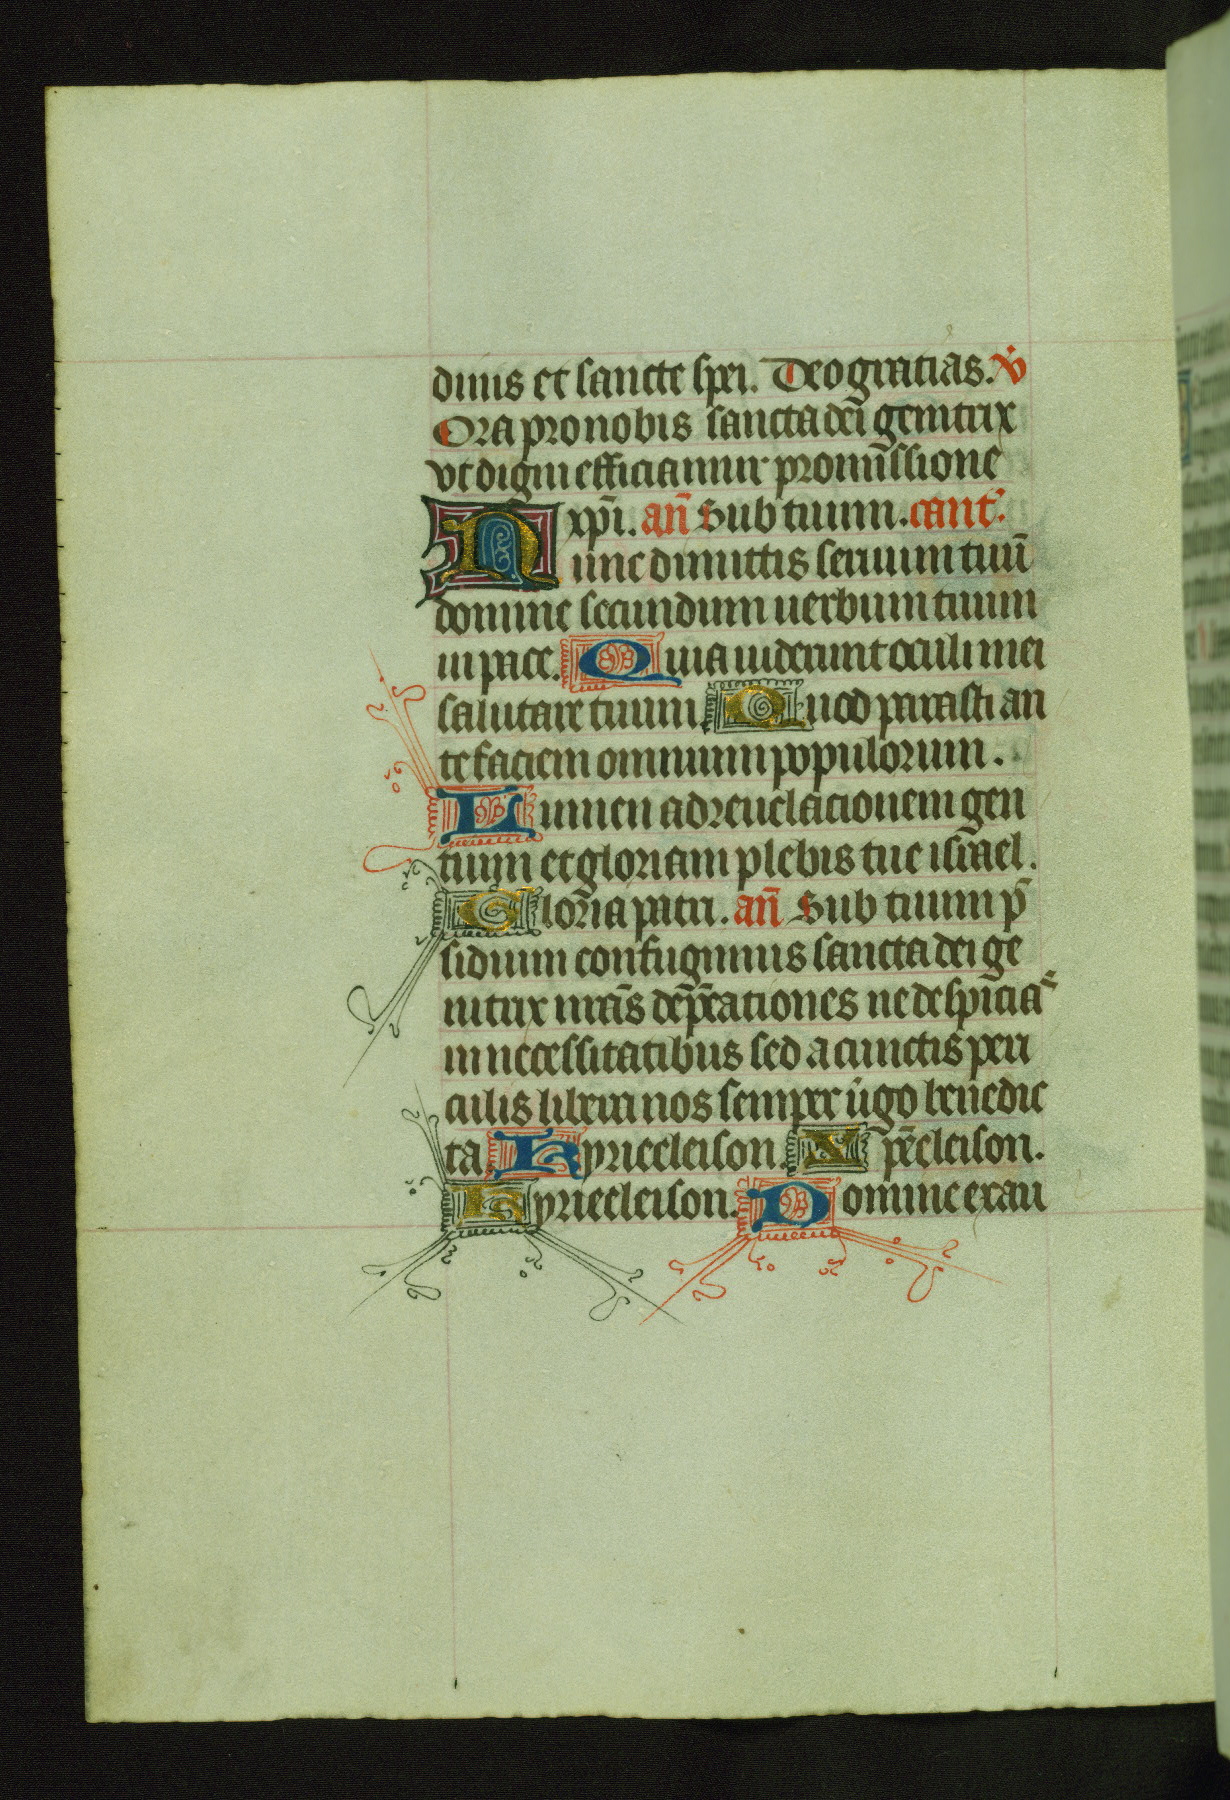 dinis et sancte spei. Deo gratias. v̇
Ora pro nobis sancta dei genitrix
vt digni efficiamur promissione
xp̄i. an̄ Sub tuum. cant̄.
Nunc dimittis seruum tuū
domine secundum uerbum tuum
in pace. Quia uiderunt oculi mei
salutare tuum. Quod parasti an
te faciem omnium populorum.
Lumen ad reuelacionem gen
tium et gloriam plebis tue isr̄ael.
Gloria patri. an̄ Sub tuum p̄
sidium confugimus sancta dei ge
nitrix nr̄as dep̄cationes ne despicias
in necessitatibus sed a cunctis peri
culis libera nos semper uirgo benedic
ta. Kyrieeleison. Xp̄eeleison.
Kyrieeleison. Domine exau